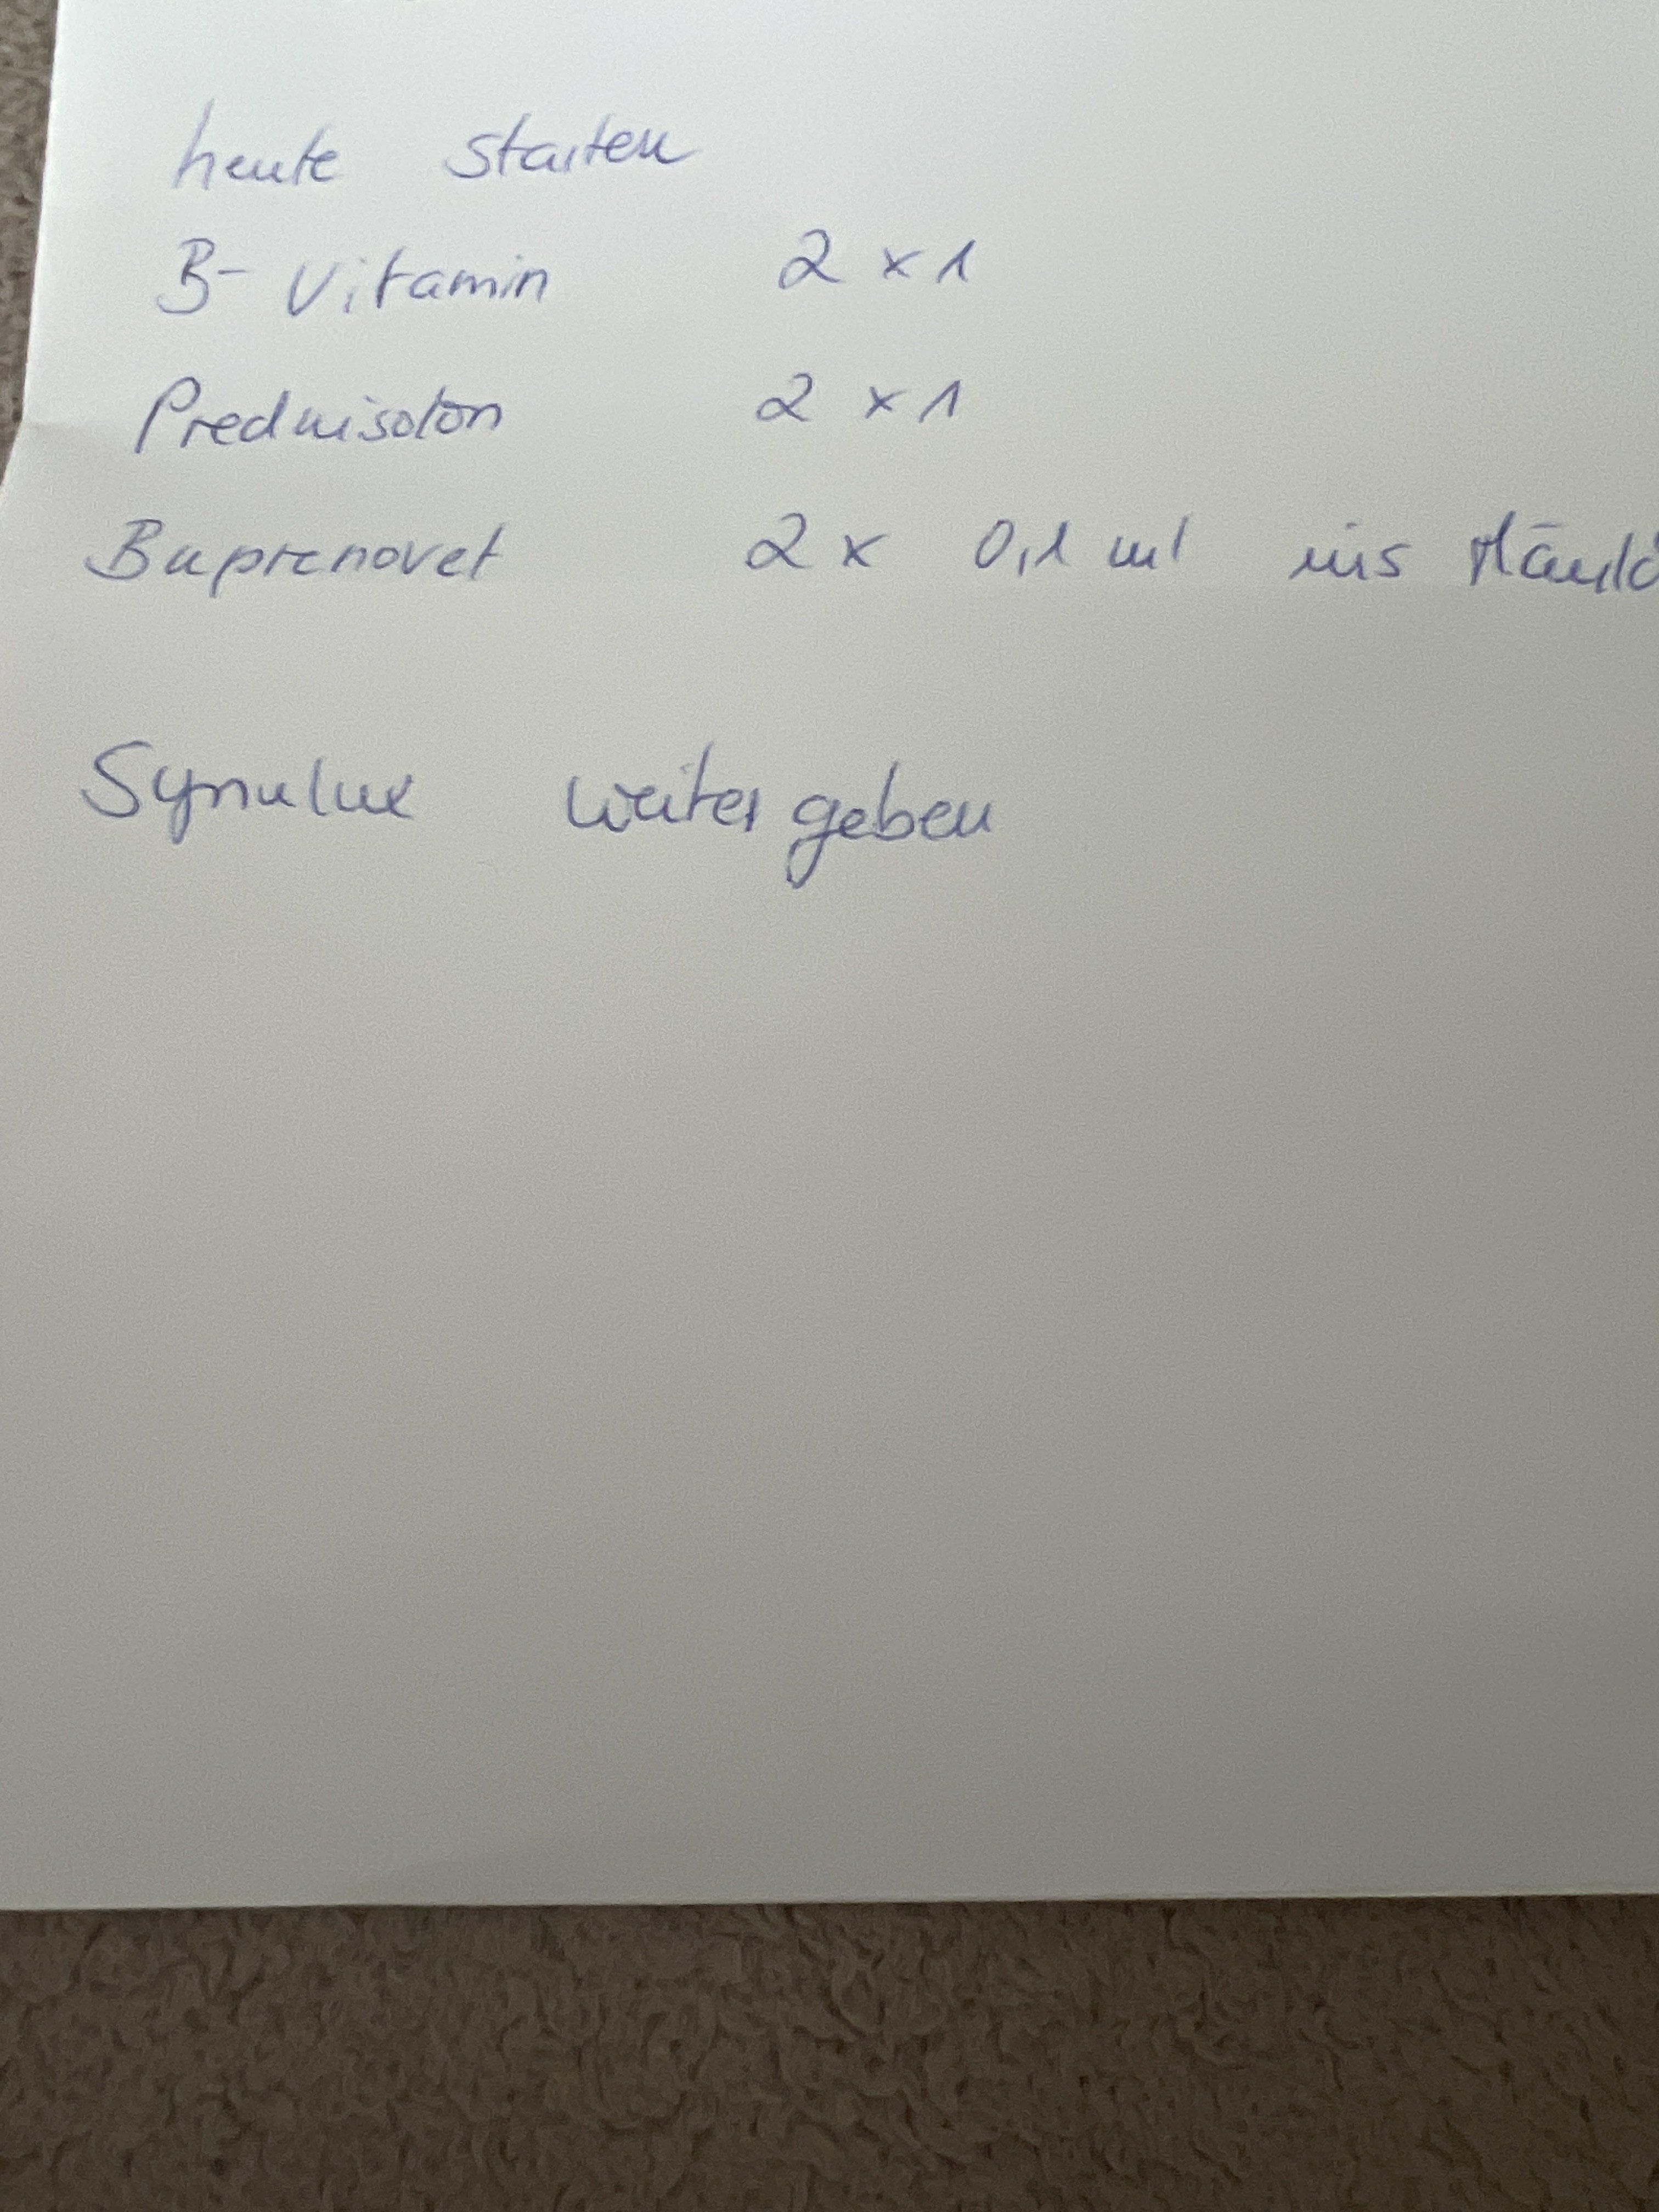 heute starten
B-Vitamin 2 x 1
Prednisolon 2 x 1
Buprenovet 2 x 0,1 ml ins
Synulux weiter geben